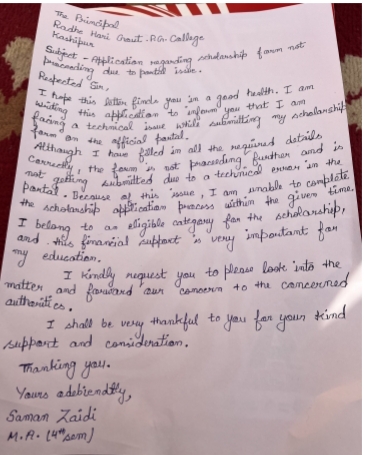 The Principal
Radhe Hari Govt. P.G. College
Kashipur
Subject - Application regarding scholarship form not
proceeding due to portal issue.
Respected Sir,
I hope this letter finds you in a good health. I am
writing this application to inform you that I am
facing a technical issue while submitting my scholarship
form on the official portal.
Although I have filled in all the required details
correctly, the form is not proceeding further and is
not getting submitted due to a technical error in the
portal. Because of this issue, I am unable to complete
the scholarship application process within the given time.
I belong to an eligible category for the scholarship,
and this financial support is very important for
my education.
I kindly request you to please look into the
matter and forward our concern to the concerned
authorities.
I shall be very thankful to you for your kind
support and consideration.
Thanking you.
Yours obediently,
Saman Zaidi
M.A. (4th sem)